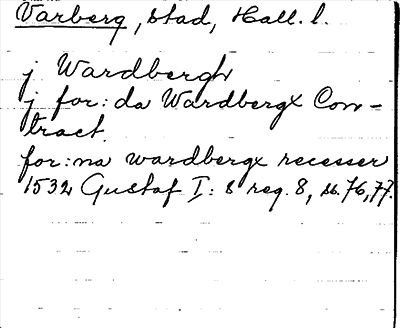 Varberg, stad, Hall. l.
j Wardbergh
j for:da Wardbergx Con-
tract.
for:na wardbergx recesser
1532 Gustaf I:s reg. 8, ss. 76, 77.